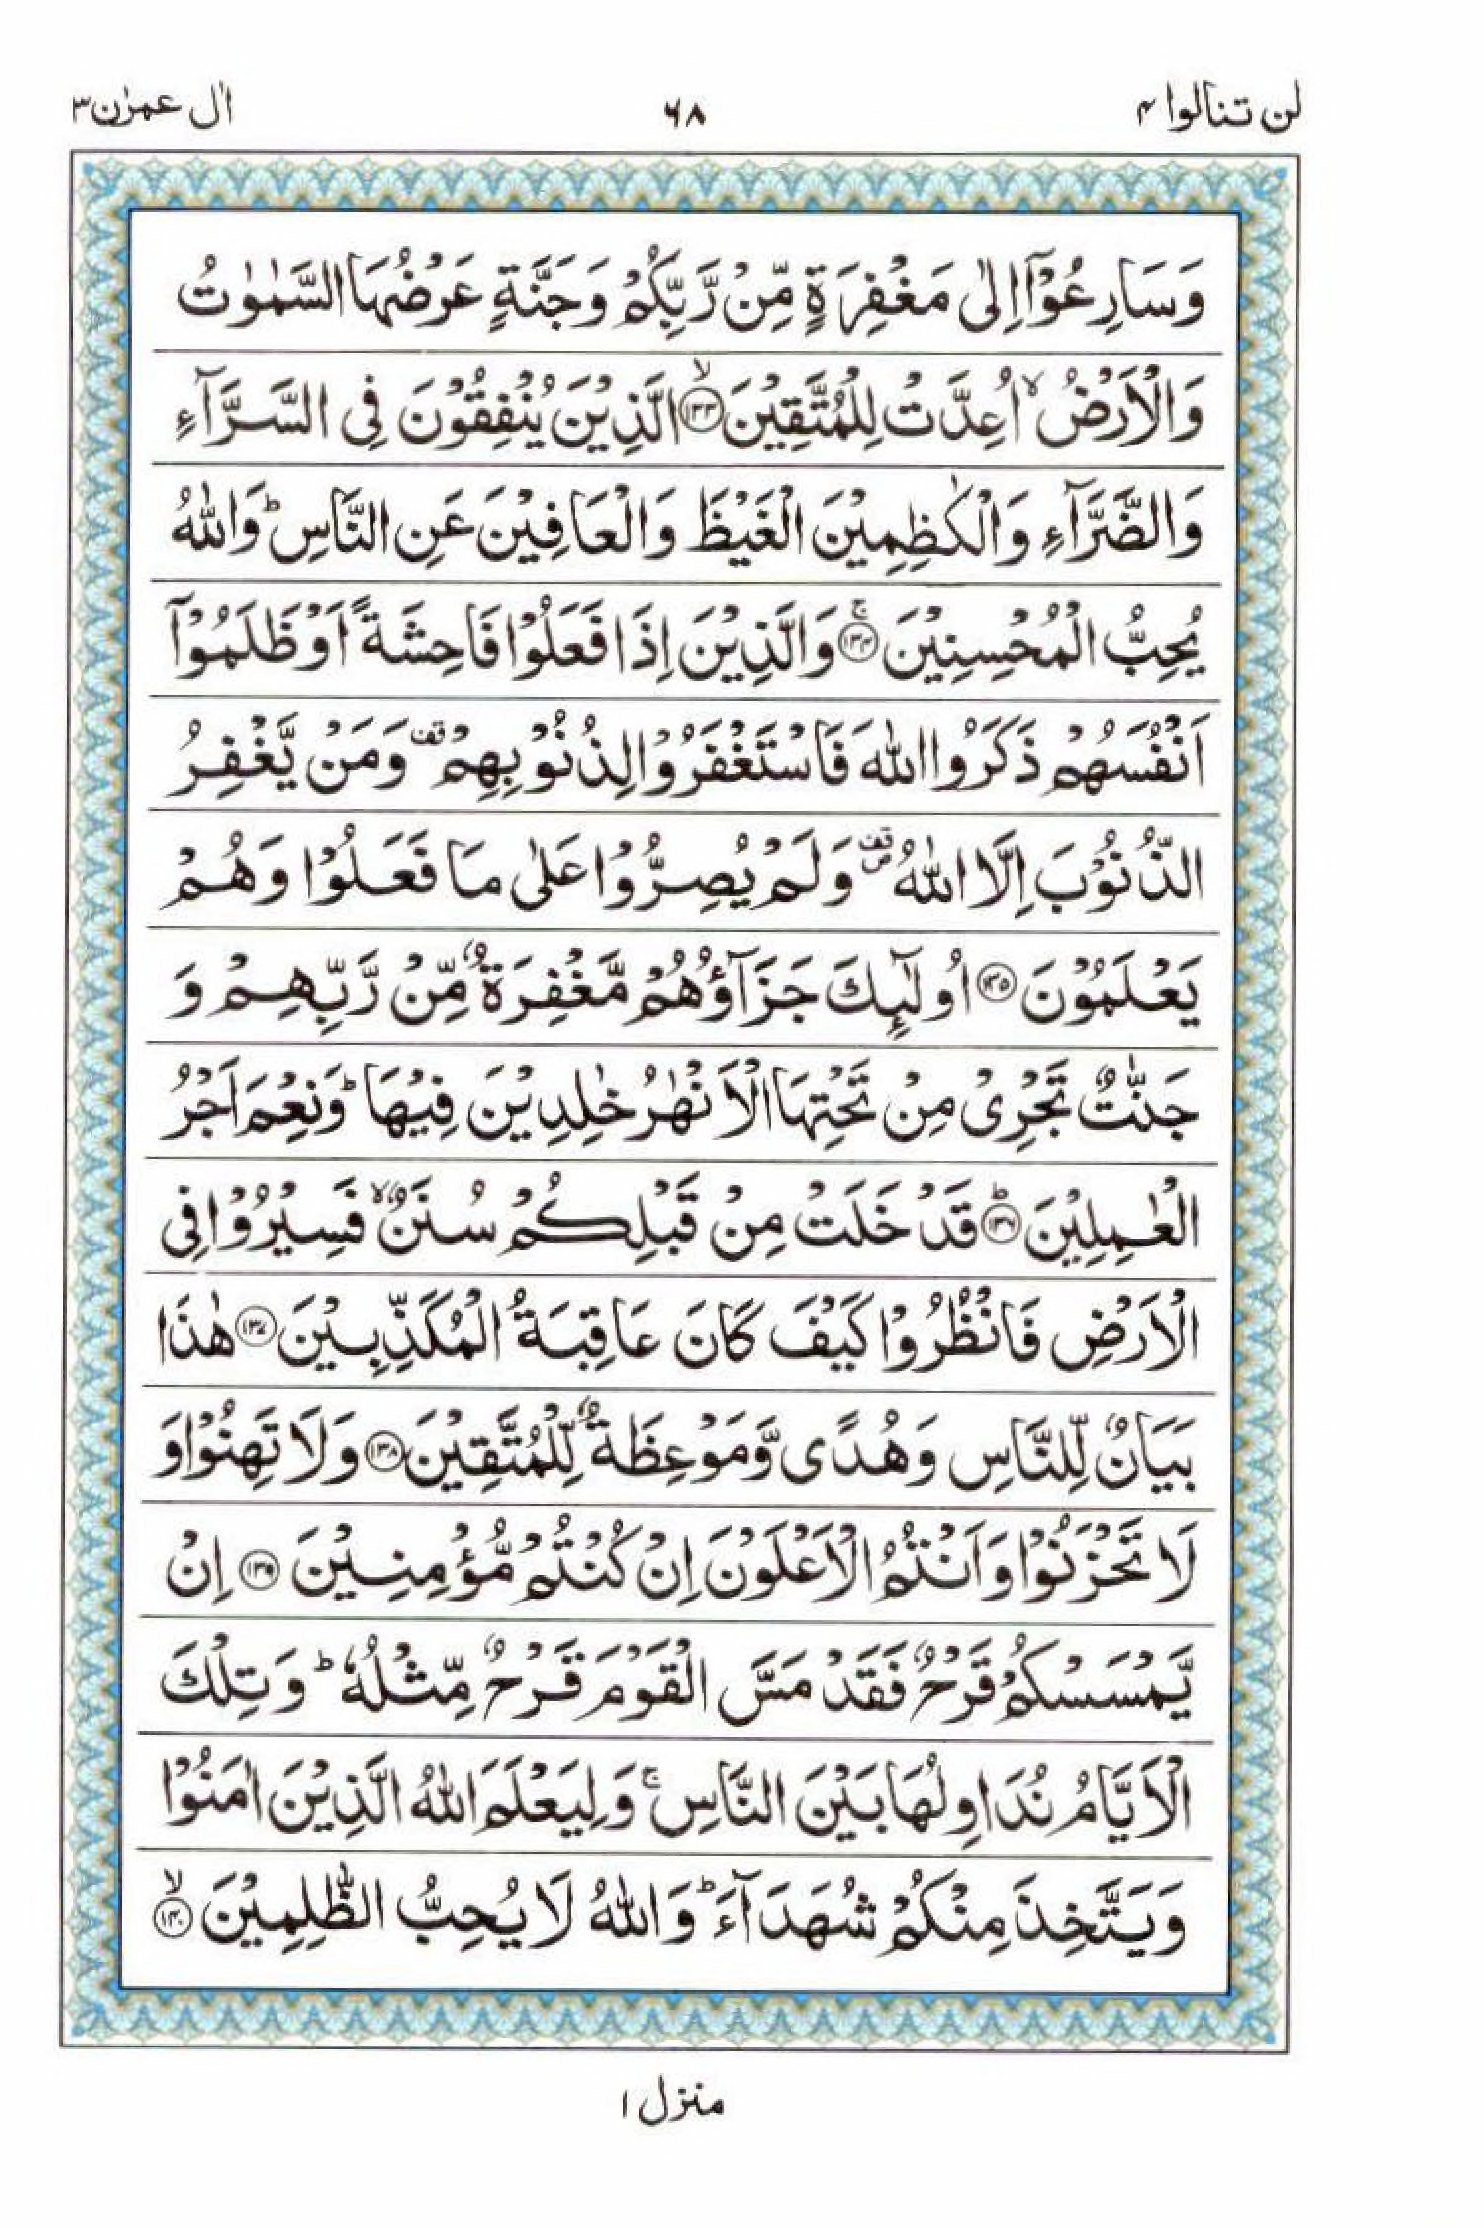 لن تنالوا ۴ ۶۸ اٰل عمرٰن ۳
وَسَارِعُوْٓا اِلٰى مَغْفِرَةٍ مِّنْ رَّبِّكُمْ وَجَنَّةٍ عَرْضُهَا السَّمٰوٰتُ
وَالْاَرْضُ ۙ اُعِدَّتْ لِلْمُتَّقِيْنَ ﴿۱۳۳﴾ۙ الَّذِيْنَ يُنْفِقُوْنَ فِى السَّرَّآءِ
وَالضَّرَّآءِ وَالْكٰظِمِيْنَ الْغَيْظَ وَالْعَافِيْنَ عَنِ النَّاسِ ؕ وَاللّٰهُ
يُحِبُّ الْمُحْسِنِيْنَ ﴿۱۳۴﴾ۚ وَالَّذِيْنَ اِذَا فَعَلُوْا فَاحِشَةً اَوْ ظَلَمُوْٓا
اَنْفُسَهُمْ ذَكَرُوا اللّٰهَ فَاسْتَغْفَرُوْا لِذُنُوْبِهِمْ قف وَمَنْ يَّغْفِرُ
الذُّنُوْبَ اِلَّا اللّٰهُ قف وَلَمْ يُصِرُّوْا عَلٰى مَا فَعَلُوْا وَهُمْ
يَعْلَمُوْنَ ﴿۱۳۵﴾ اُولٰٓئِكَ جَزَآؤُهُمْ مَّغْفِرَةٌ مِّنْ رَّبِّهِمْ وَ
جَنّٰتٌ تَجْرِىْ مِنْ تَحْتِهَا الْاَنْهٰرُ خٰلِدِيْنَ فِيْهَا ؕ وَنِعْمَ اَجْرُ
الْعٰمِلِيْنَ ﴿۱۳۶﴾ؕ قَدْ خَلَتْ مِنْ قَبْلِكُمْ سُنَنٌ ۙ فَسِيْرُوْا فِى
الْاَرْضِ فَانْظُرُوْا كَيْفَ كَانَ عَاقِبَةُ الْمُكَذِّبِيْنَ ﴿۱۳۷﴾ هٰذَا
بَيَانٌ لِّلنَّاسِ وَهُدًى وَّمَوْعِظَةٌ لِّلْمُتَّقِيْنَ ﴿۱۳۸﴾ وَلَا تَهِنُوْا وَ
لَا تَحْزَنُوْا وَاَنْتُمُ الْاَعْلَوْنَ اِنْ كُنْتُمْ مُّؤْمِنِيْنَ ﴿۱۳۹﴾ اِنْ
يَّمْسَسْكُمْ قَرْحٌ فَقَدْ مَسَّ الْقَوْمَ قَرْحٌ مِّثْلُهٗ ؕ وَتِلْكَ
الْاَيَّامُ نُدَاوِلُهَا بَيْنَ النَّاسِ ۚ وَلِيَعْلَمَ اللّٰهُ الَّذِيْنَ اٰمَنُوْا
وَيَتَّخِذَ مِنْكُمْ شُهَدَآءَ ؕ وَاللّٰهُ لَا يُحِبُّ الظّٰلِمِيْنَ ﴿۱۴۰﴾ۙ
منزل ۱